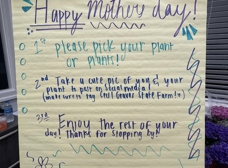 Happy Mother day!
1st please pick your plant
or plants!
2nd Take a cute pic of you & your
plant to post to social media!
(make sure to tag Chris Graves State Farm!)
3rd Enjoy the rest of your
day! Thanks for stopping by!!